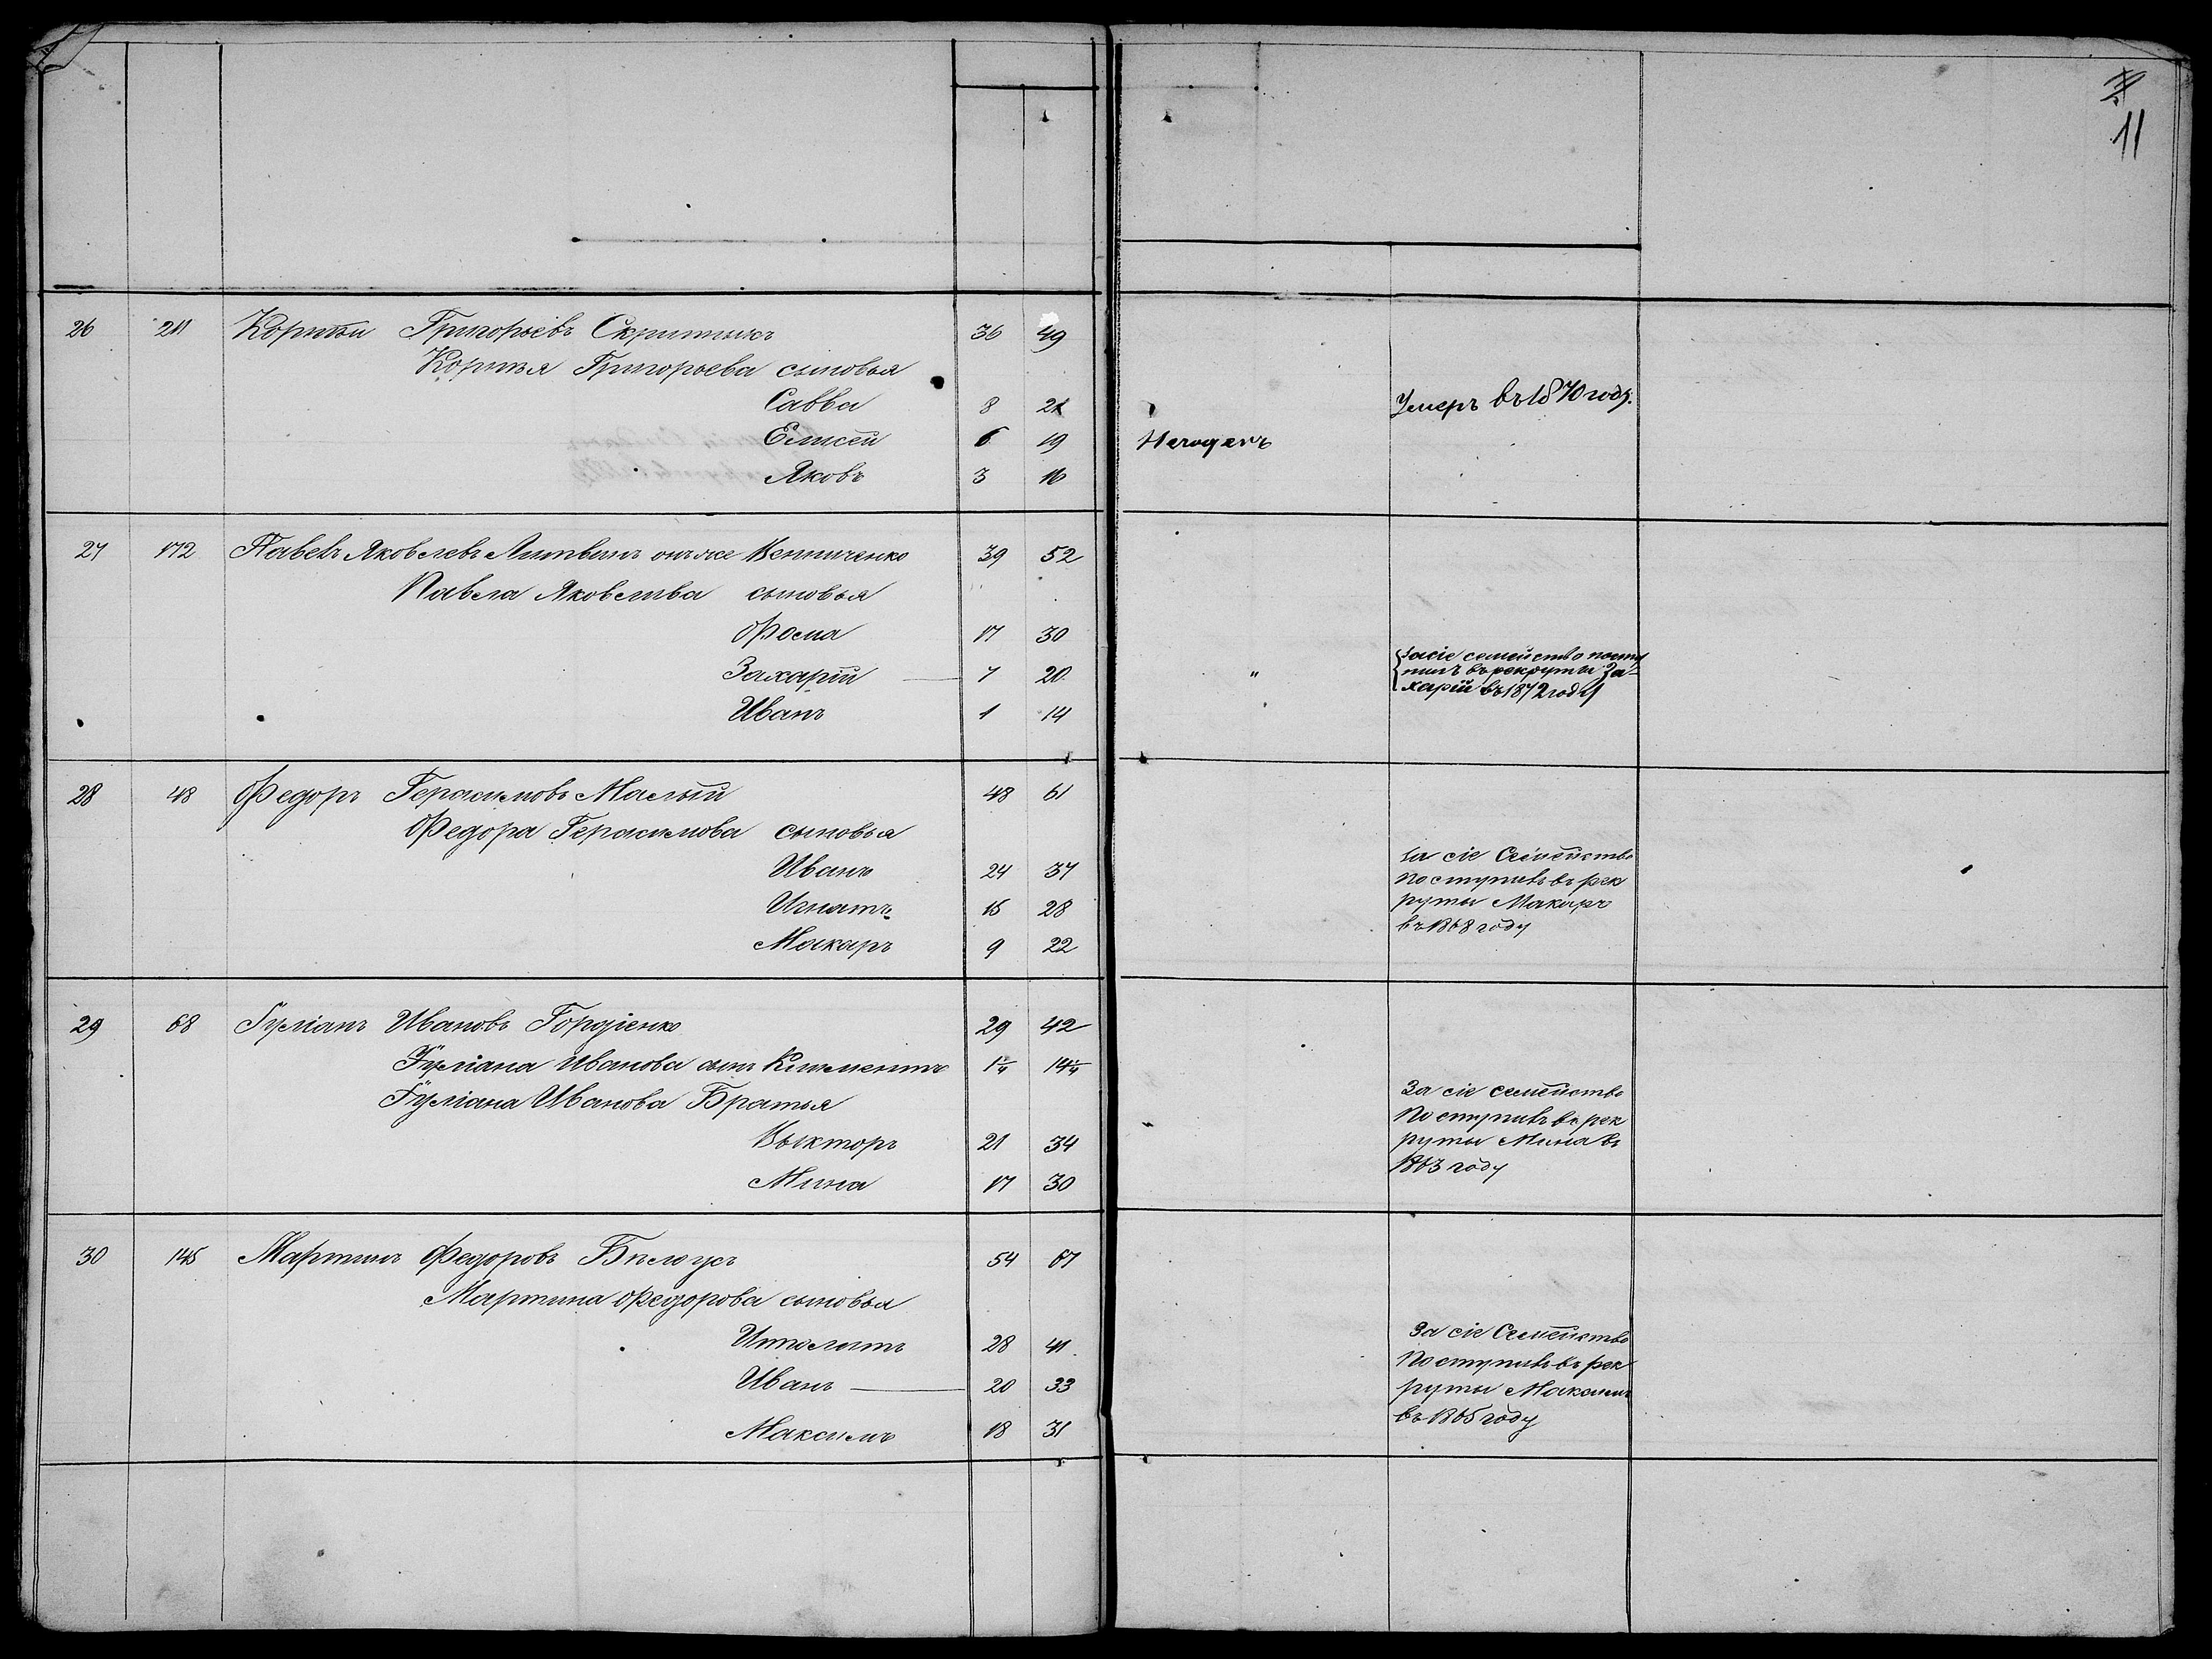 11
26 211 Корнѣй Григорьевъ Скрипникъ 36 49
Корнѣя Григорьева сыновья
Савва 8 21 Умеръ въ 1870 году.
Елисей 6 19 Негоденъ
Яковъ 3 16
27 172 Павелъ Яковлевъ Литвинъ онъ же 39 52
Павла Яковлева сыновья
Фома 17 30
Захарій 7 20 " За сіе семейство посту
пилъ въ рекруты За-
харій въ 1872 году
Иванъ 1 14
28 48 Федоръ Герасимовъ Малый 48 61
Федора Герасимова сыновья
Иванъ 24 37 за сіе Семейство
Игнатъ 15 28 Поступилъ въ рек
руты Макаръ
Макаръ 9 22 въ 1868 году
29 68 Іуліанъ Ивановъ Гордіенко 29 42
Іуліана Иванова сынъ Климентъ 1¼ 14¼
Іуліана Иванова Братья За сіе семейство
Поступилъ въ рек
Выкторъ 21 34 руты Мина въ
1863 году
Мина 17 30
30 145 Мартинъ Федоровъ Бѣлоусъ 54 67
Мартина Федорова сыновья
Иполитъ 28 41 За сіе Семейство
Поступилъ въ рек
Иванъ 20 33 руты Максимъ
въ 1865 году
Максимъ 18 31